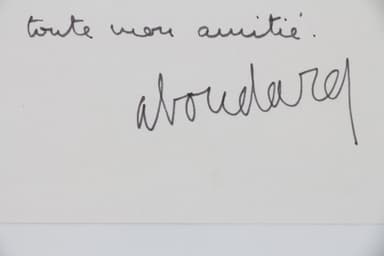 toute mon amitié.
aboudard